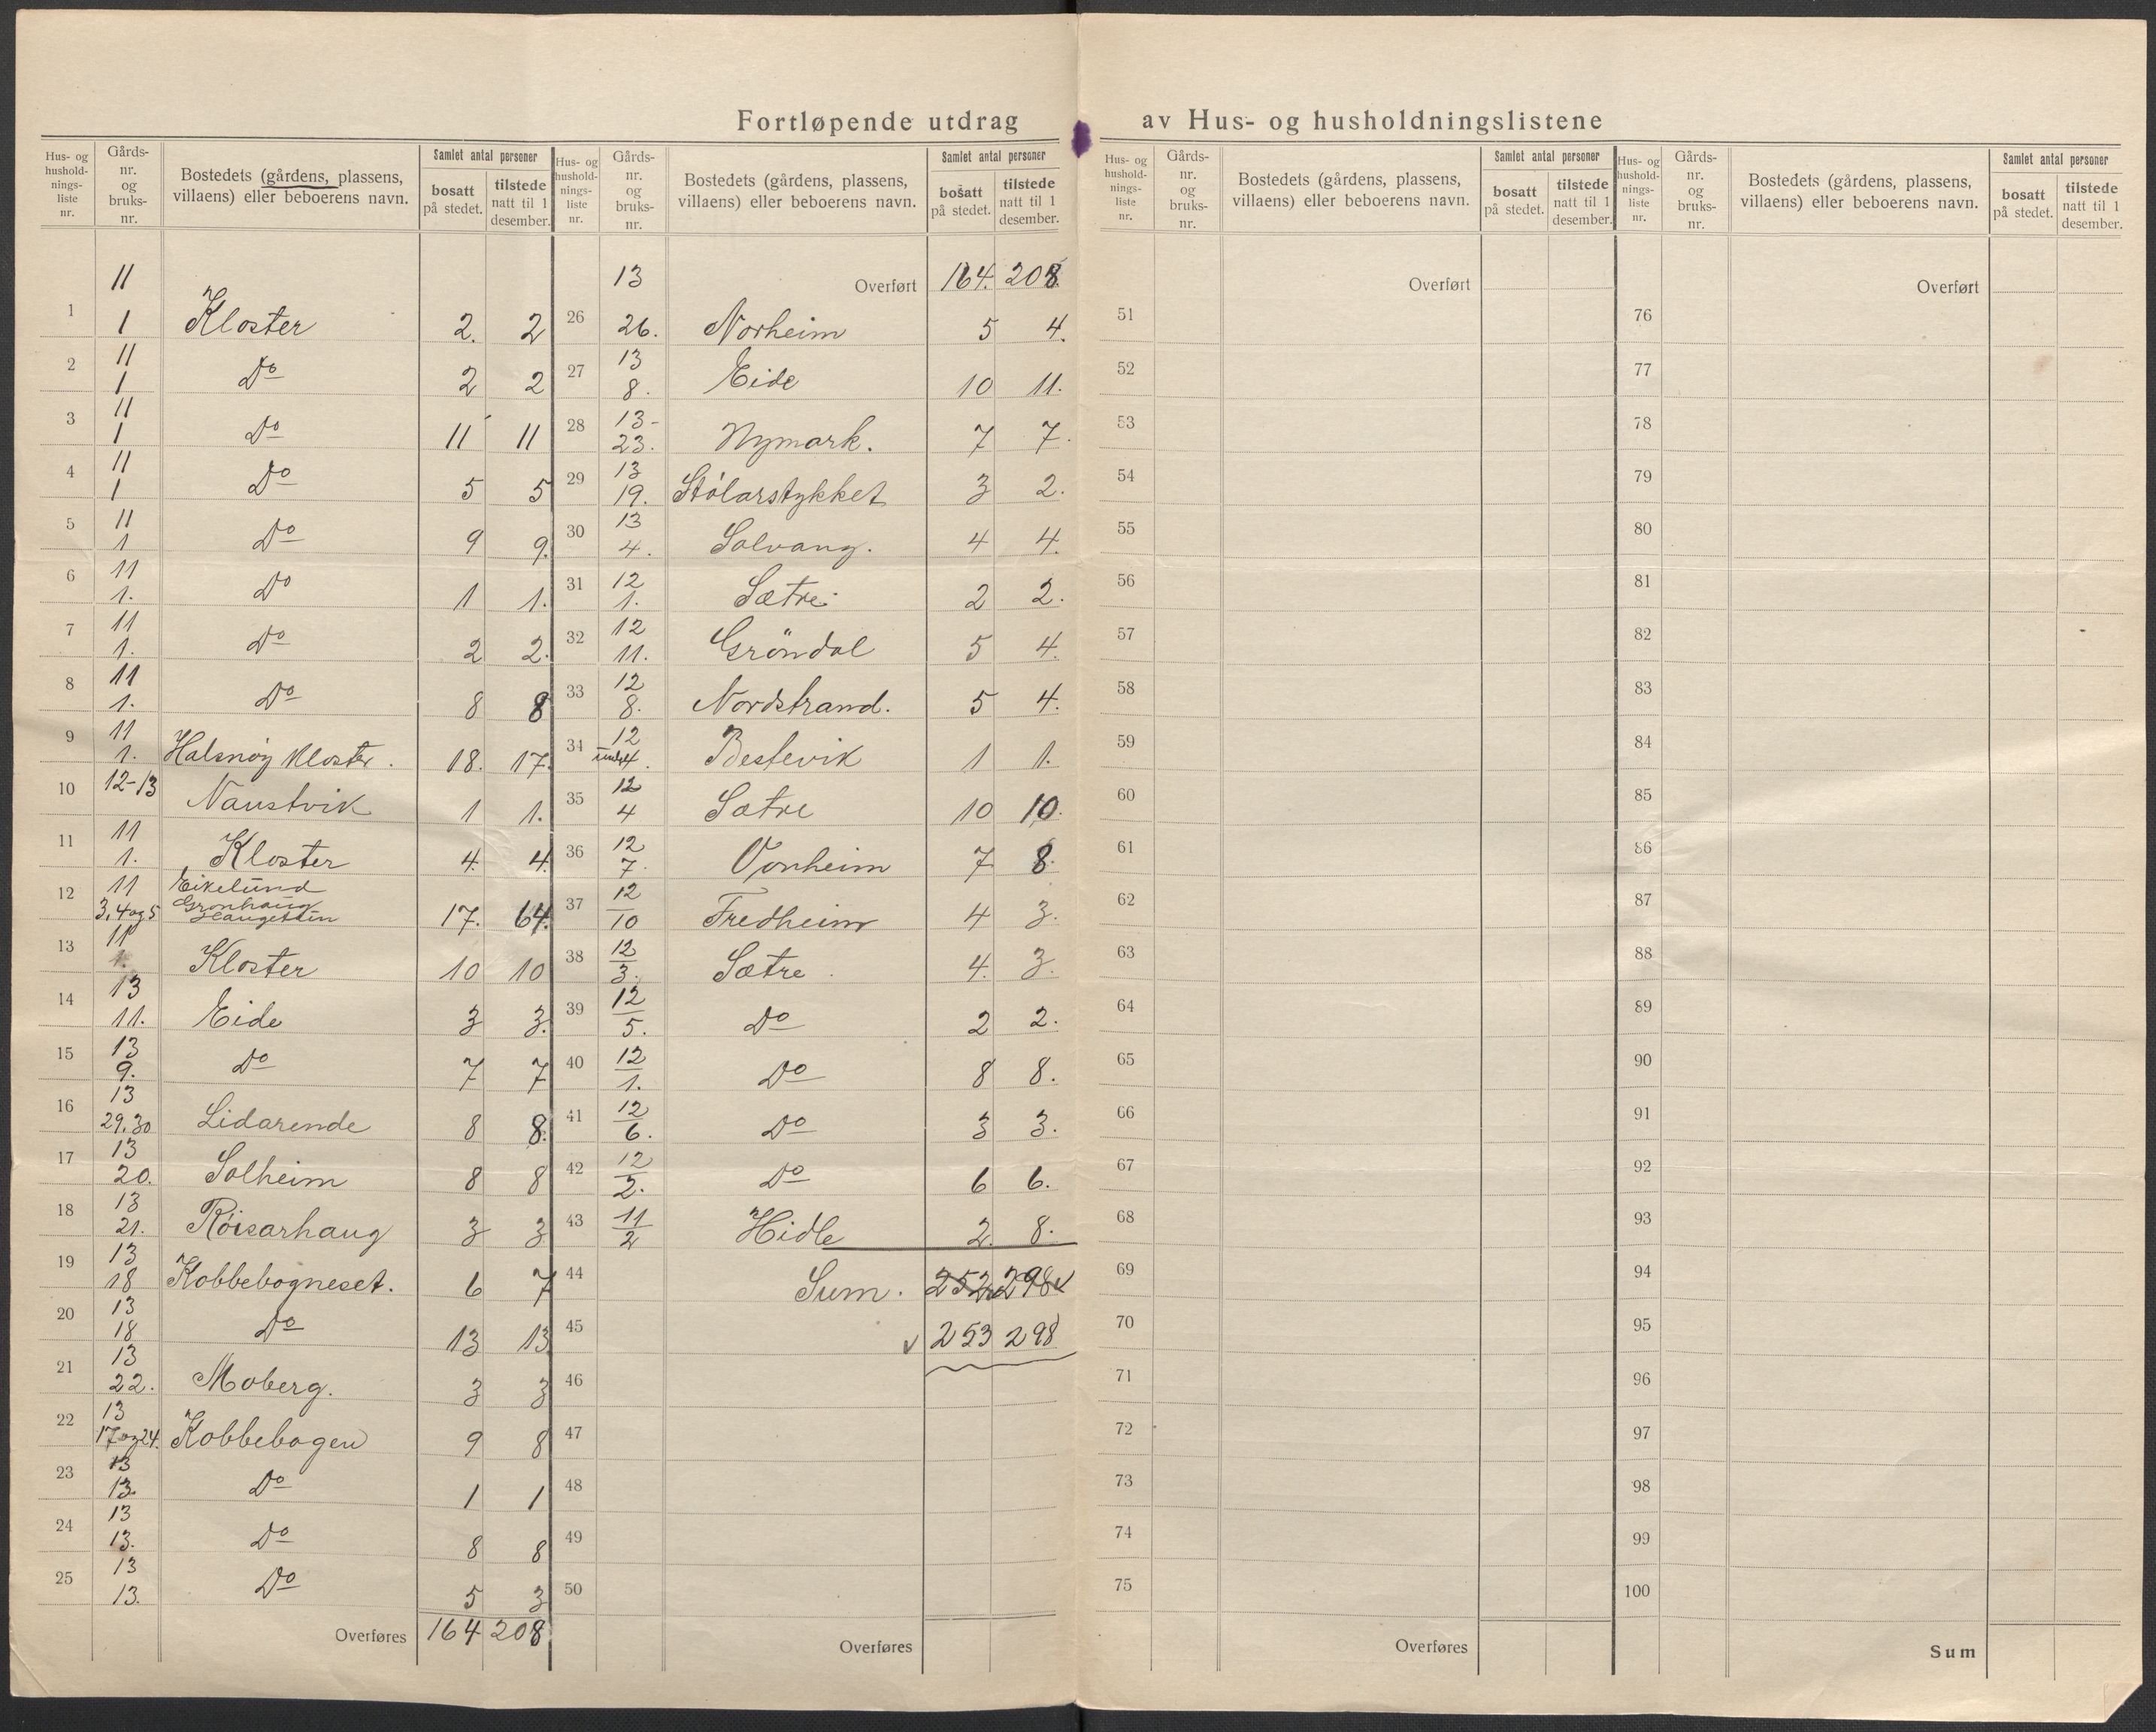 Fortløpende utdrag av Hus- og husholdningslistene
Hus- og hushold- nings- liste nr. | Gårds- nr. og bruks- nr. | Bostedets (gårdens, plassens, villaens) eller beboerens navn. | Samlet antal personer | bosatt på stedet. | tilstede natt til 1 desember.
1 | 11 1 | Kloster | 2. | 2
2 | 11 1 | Do | 2 | 2
3 | 11 1 | Do | 11 | 11
4 | 11 1 | Do | 5 | 5
5 | 11 1 | Do | 9 | 9.
6 | 11 1. | Do | 1 | 1.
7 | 11 1. | Do | 2 | 2.
8 | 11 1. | Do | 8 | 8
9 | 11 1. | Halsnøy Kloster. | 18. | 17.
10 | 12-13 | Naustvik | 1 | 1.
11 | 11 1. | Kloster | 4. | 4.
12 | 11 3, 4 og 5 | Eikelund Grønhaug Haugetun | 17. | 64.
13 | 11 1. | Kloster | 10 | 10
14 | 13 11. | Eide | 3 | 3.
15 | 13 9. | Do | 7 | 7
16 | 13 29.30 | Lidarende | 8 | 8.
17 | 13 20. | Solheim | 8 | 8
18 | 13 21. | Röisarhaug | 3 | 3
19 | 13 18 | Kobbebogneset. | 6 | 7
20 | 13 18 | Do | 13 | 13
21 | 13 22. | Moberg. | 3 | 3
22 | 13 17 og 24. | Kobbebogen | 9 | 8
23 | 13 13. | Do | 1 | 1
24 | 13 13. | Do | 8 | 8
25 | 13 13. | Do | 5 | 3
Overføres | 164 | 208
Hus- og hushold- nings- liste nr. | Gårds- nr. og bruks- nr. | Bostedets (gårdens, plassens, villaens) eller beboerens navn. | Samlet antal personer | bosatt på stedet. | tilstede natt til 1 desember.
Overført | 164. | 208.
26 | 13 26. | Norheim | 5 | 4.
27 | 13 8. | Eide | 10 | 11.
28 | 13- 23. | Nymark. | 7 | 7.
29 | 13 19. | Stølarstykket | 3 | 2.
30 | 13 4. | Solvang. | 4 | 4.
31 | 12 1. | Sætre. | 2 | 2.
32 | 12 11. | Gröndal | 5 | 4.
33 | 12 8. | Nordstrand. | 5 | 4.
34 | 12 under 4. | Bestevik | 1 | 1.
35 | 12 4 | Sætre | 10 | 10.
36 | 12 7. | Vonheim | 7 | 8.
37 | 12 10 | Fredheim | 4 | 3.
38 | 12 3. | Sætre. | 4. | 3.
39 | 12 5. | Do | 2 | 2.
40 | 12 1. | Do | 8 | 8.
41 | 12 6. | Do | 3 | 3.
42 | 12 2. | Do | 6 | 6.
43 | 11 2 | Hidle | 2. | 8.
44 | Sum. | 252 | 298
45 | 253 | 298
46
47
48
49
50
Overføres
Hus- og hushold- nings- liste nr. | Gårds- nr. og bruks- nr. | Bostedets (gårdens, plassens, villaens) eller beboerens navn. | Samlet antal personer | bosatt på stedet. | tilstede natt til 1 desember.
Overført
51
52
53
54
55
56
57
58
59
60
61
62
63
64
65
66
67
68
69
70
71
72
73
74
75
Overføres
Hus- og hushold- nings- liste nr. | Gårds- nr. og bruks- nr. | Bostedets (gårdens, plassens, villaens) eller beboerens navn. | Samlet antal personer | bosatt på stedet. | tilstede natt til 1 desember.
Overført
76
77
78
79
80
81
82
83
84
85
86
87
88
89
90
91
92
93
94
95
96
97
98
99
100
Sum